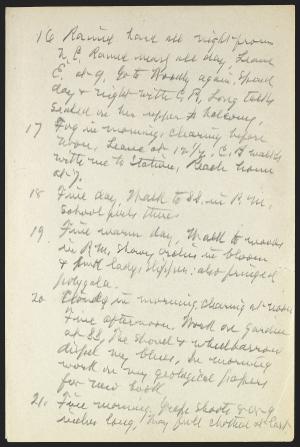 16 Rained hard all night from
N.E. Rains most all day, Leave
E. at 9, Go to Woody again. Spend
day & night with C.B, Long talks,
seated in her upper
17 Fog in morning, clearing before
noon, Leave at 12½, C.B walks
with me to station, Reach home
at 7.
18 Fine day, Walk to S.S. in P.M,
School girls there
19 Fine warm day, Walk to woods
in P.M, Showy orchis in bloom
& lady's slipper; also fringed
polygala.
20 Cloudy in morning, clearing at noon
Fine afternoon. Work on garden
at S.S, The shovel & wheelbarrow
dispel my blues, In morning
work on my geological papers
for new book
21, Fine morning, Grape shoots 6 or 9
inches long, May full clothed at last